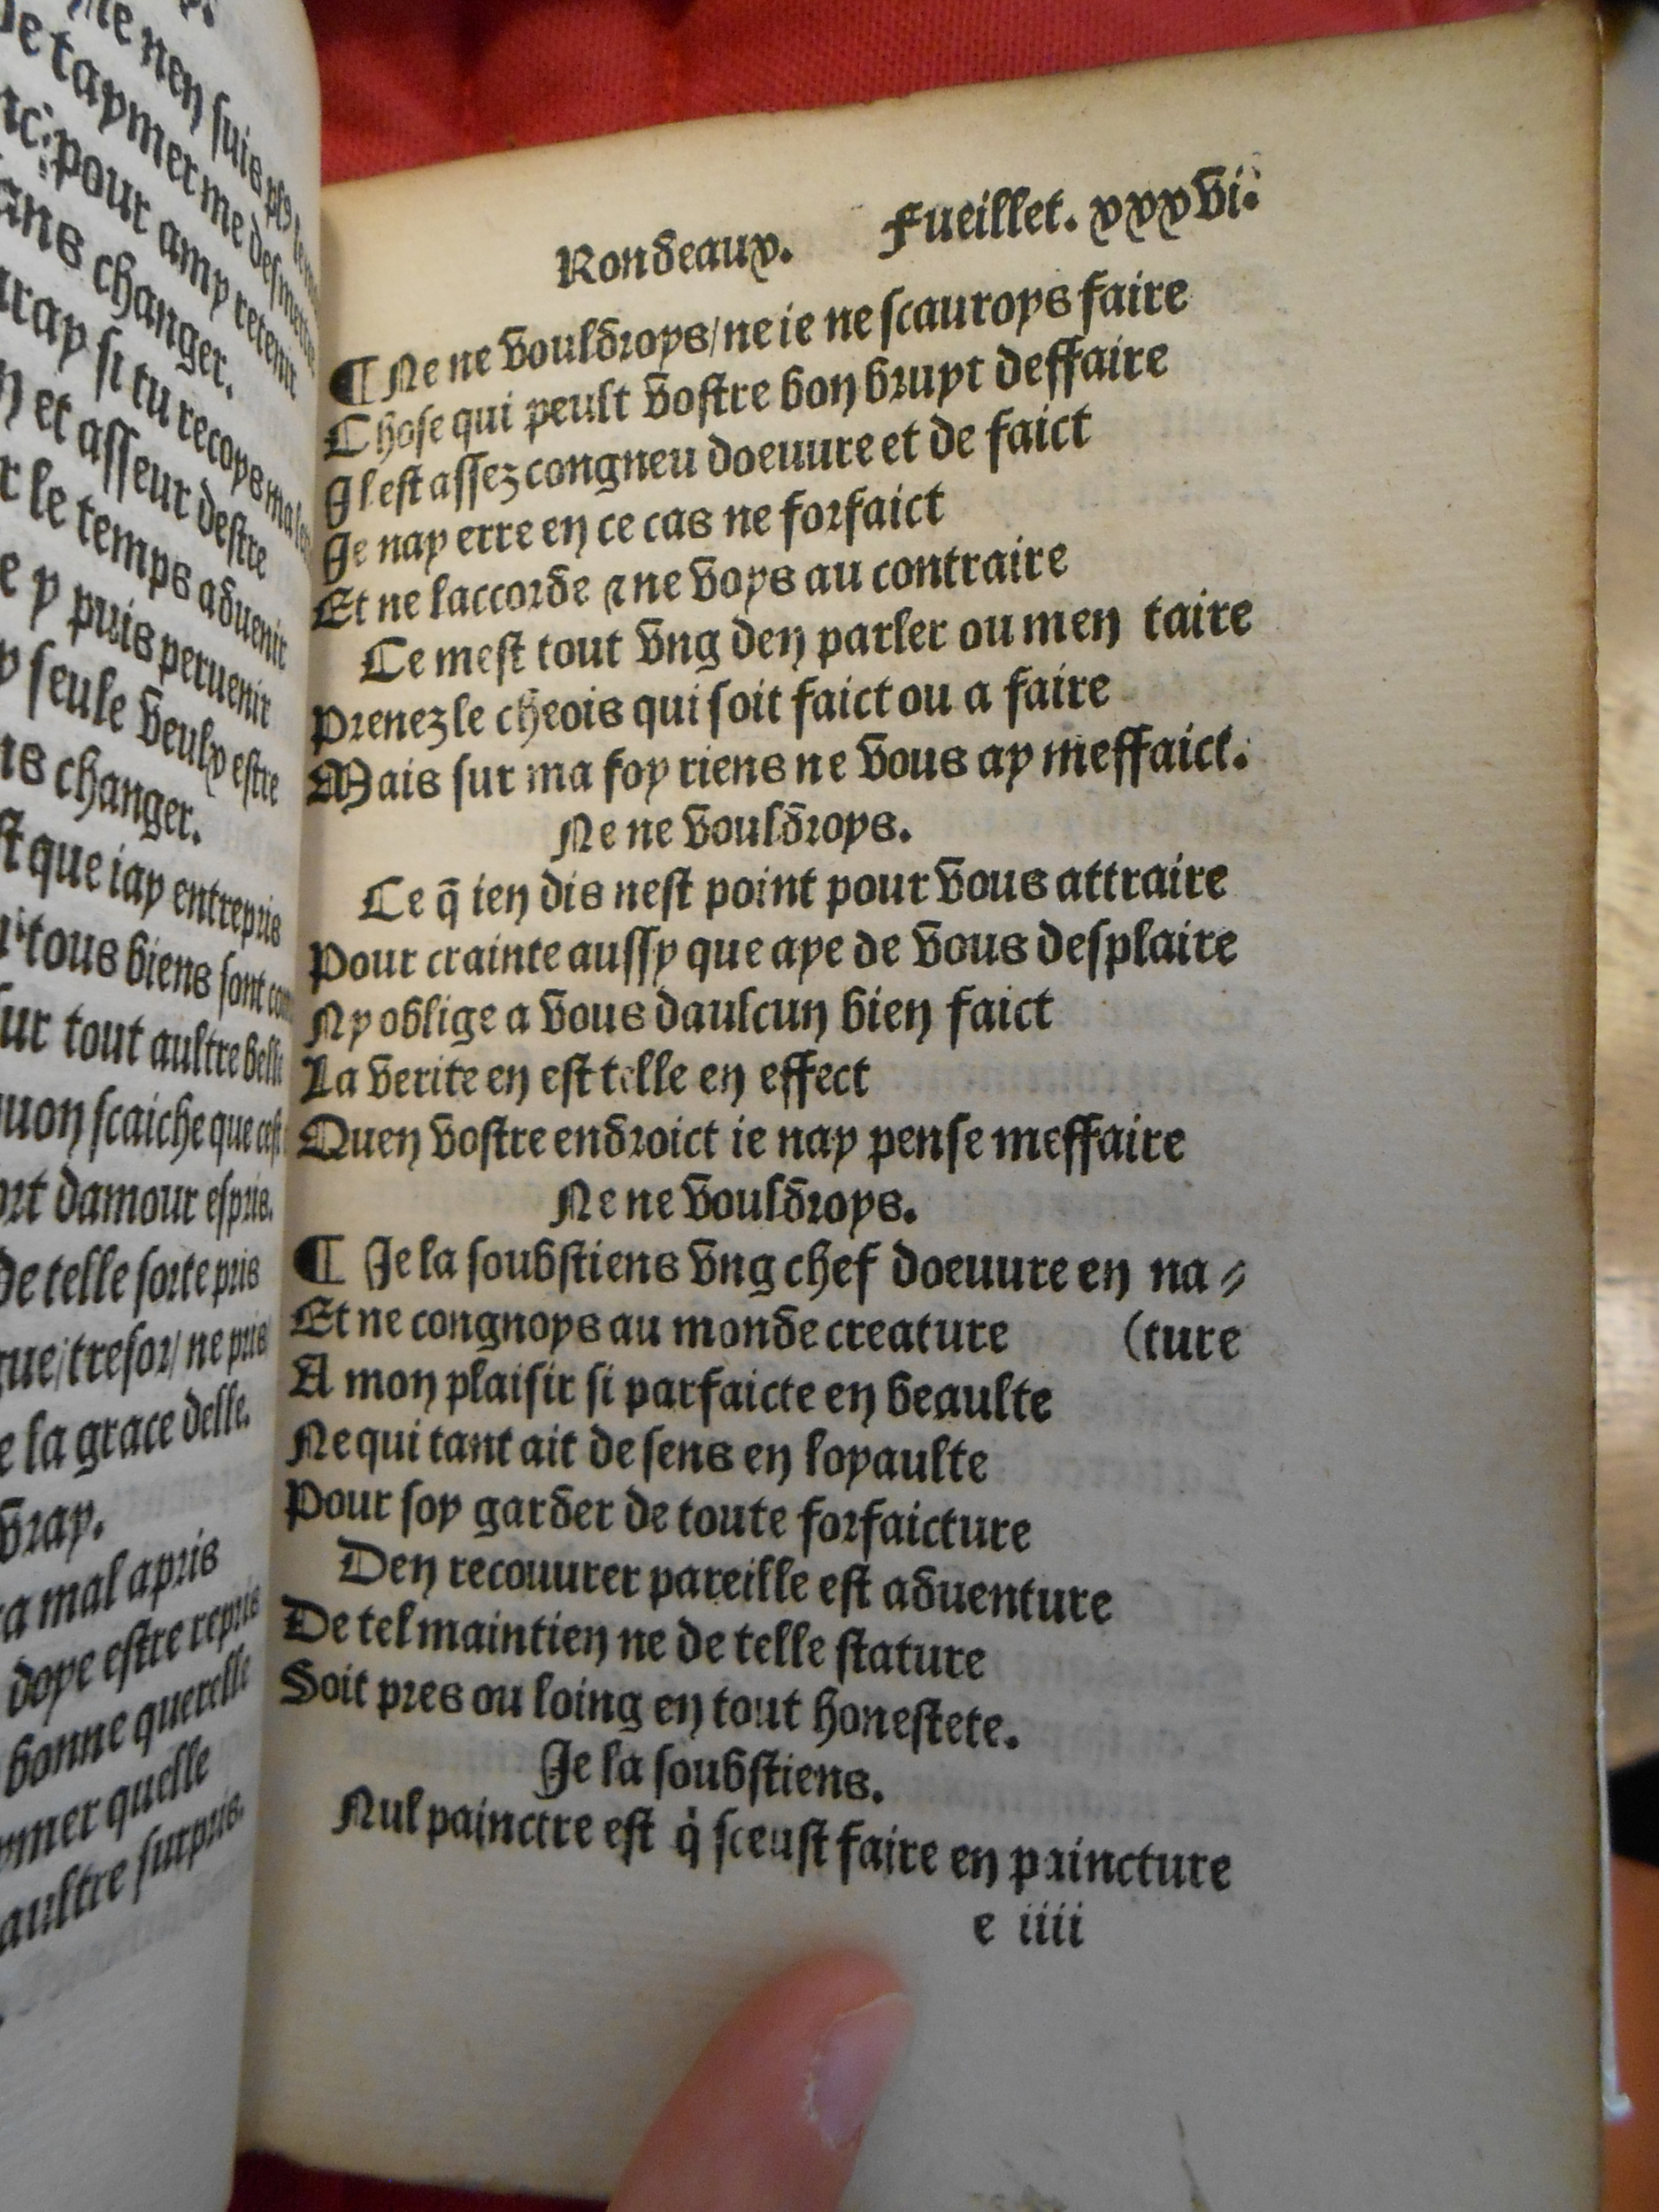 ne ney suis pl9
de taymer me desmettre
nc: pour amy retenir
ans changer.
uray si tu recoys ma
y et asseur destre
r le temps aduenir
e y puis peruenir
y seule veulx estre
ns changer.
st que iay entrepris
tous biens sont
ur tout aultre belle
uon scaiche que cest
ort damour espris.
de telle sorte pris
que/tresor/ ne pris
e la grace delle.
vray.
a mal apris
doye estre repris
bonne querelle
mer quelle
aultre surpris.
Rondeaux. Fueillet. xxxvi.
¶ Ne ne vouldroys/ne ie ne scauroys faire
Chose qui peult vostre bon bruyt deffaire
Il est assez congneu doeuure et de faict
Je nay erre en ce cas ne forfaict
Et ne laccorde ⁊ ne voys au contraire
Ce mest tout vng den parler ou men taire
Prenez le cheois qui soit faict ou a faire
Mais sur ma foy riens ne vous ay meffaict.
Ne ne vouldroys.
Ce q̃ ien dis nest point pour vous attraire
Pour crainte aussy que aye de vous desplaire
Ny oblige a vous daulcun bien faict
La verite en est telle en effect
Quen vostre endroict ie nay pense meffaire
Ne ne vouldroys.
¶ Je la soubstiens vng chef doeuure en na⸗
Et ne congnoys au monde creature (ture
A mon plaisir si parfaicte en beaulte
Ne qui tant ait de sens en loyaulte
Pour soy garder de toute forfaicture
Den recouurer pareille est aduenture
De tel maintien ne de telle stature
Soit pres ou loing en tout honestete.
Je la soubstiens.
Nul painctre est q̇ sceust faire en paincture
e iiii